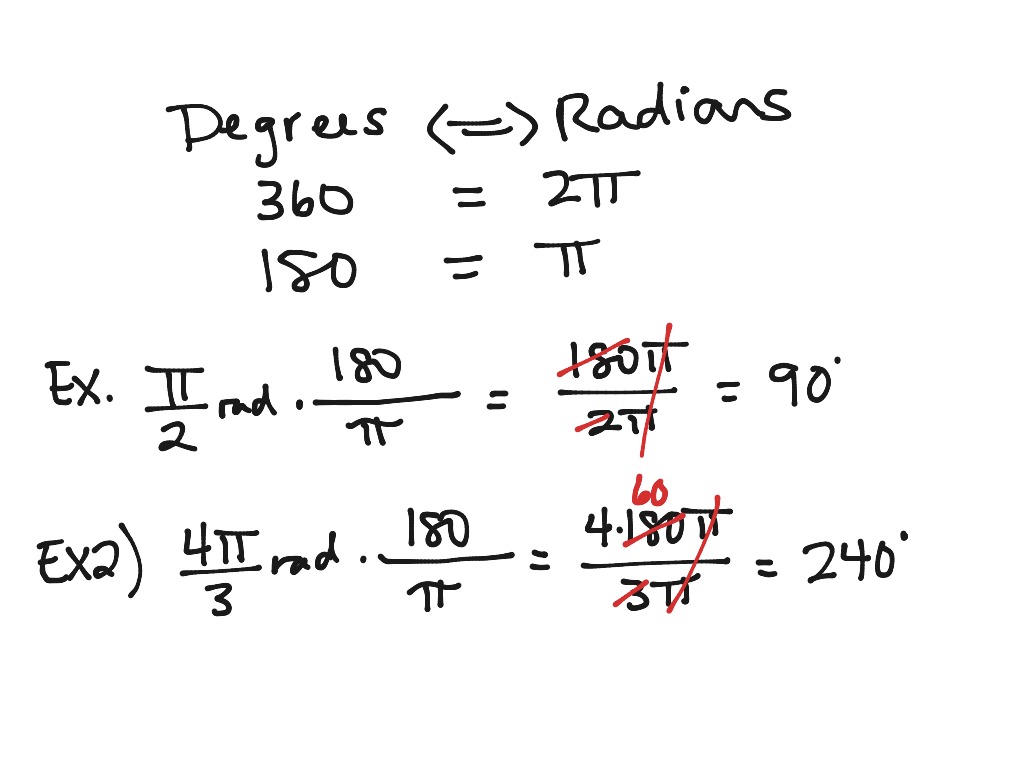 Degrees <=> Radians
360 = 2π
180 = π
Ex. π/2 rad · 180/π = 180π/2π = 90°
EX2) 4π/3 rad · 180/π = 60 4·180π/3π = 240°